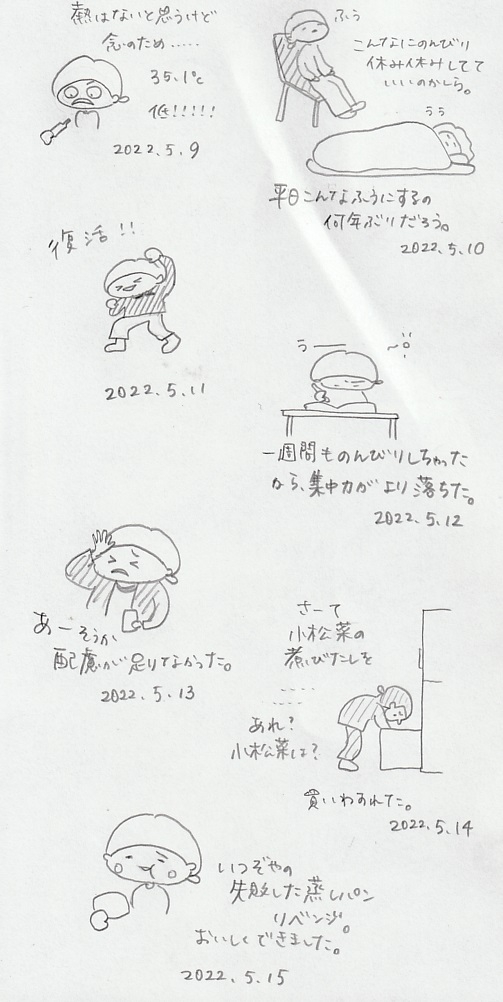 熱はないと思うけど
念のため.....
35.1℃
低!!!!!
2022.5.9
ふぅ
こんなにのんびり
休み休みしてて
いいのかしら。
うぅ
平日こんなふうにするの
何年ぶりだろう。
2022.5.10
復活!!
2022.5.11
うー
一週間ものんびりしちゃった
から、集中力がより落ちた。
2022.5.12
あーそうか
配慮が足りてなかった。
2022.5.13
さーて
小松菜の
煮びたしを
あれ?
小松菜は?
買いわすれた。
2022.5.14
いつぞやの
失敗した蒸しパン
リベンジ。
おいしくできました。
2022.5.15